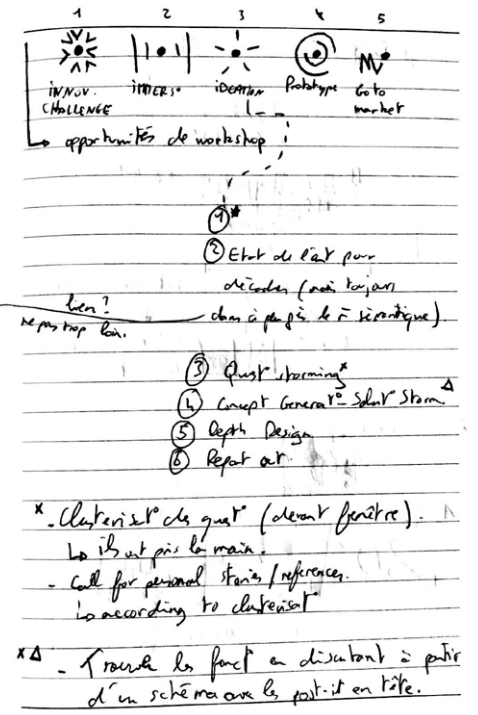 1 2 3 4 5
INNOV. IMMERS° IDEATION Prototype Go to
CHALLENGE market
opportunités de workshop
1 *
2 Etat de l'art pour
décoder (mais toujours
lien? dans à peu près le sémantique).
ne pas trop loin.
3 Quest° storming *
4 Concept Generat° - Solut° Storm Δ
5 Depth Design
6 Report out.
* - Clusterisat° des quest° (devant fenêtre).
↳ ils ont pris la main.
- Call for personal stories / references.
↳ according to clusterisat°
* Δ - Trouver les fonct° en discutant à partir
d'un schéma avec les post-it en tête.